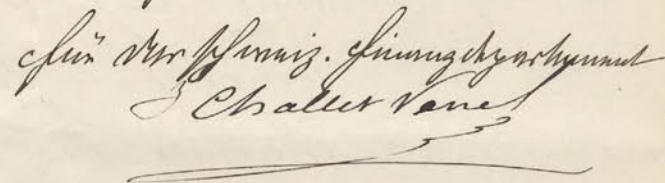 Für das schweiz. Finanzdepartement
J J Challet Venel